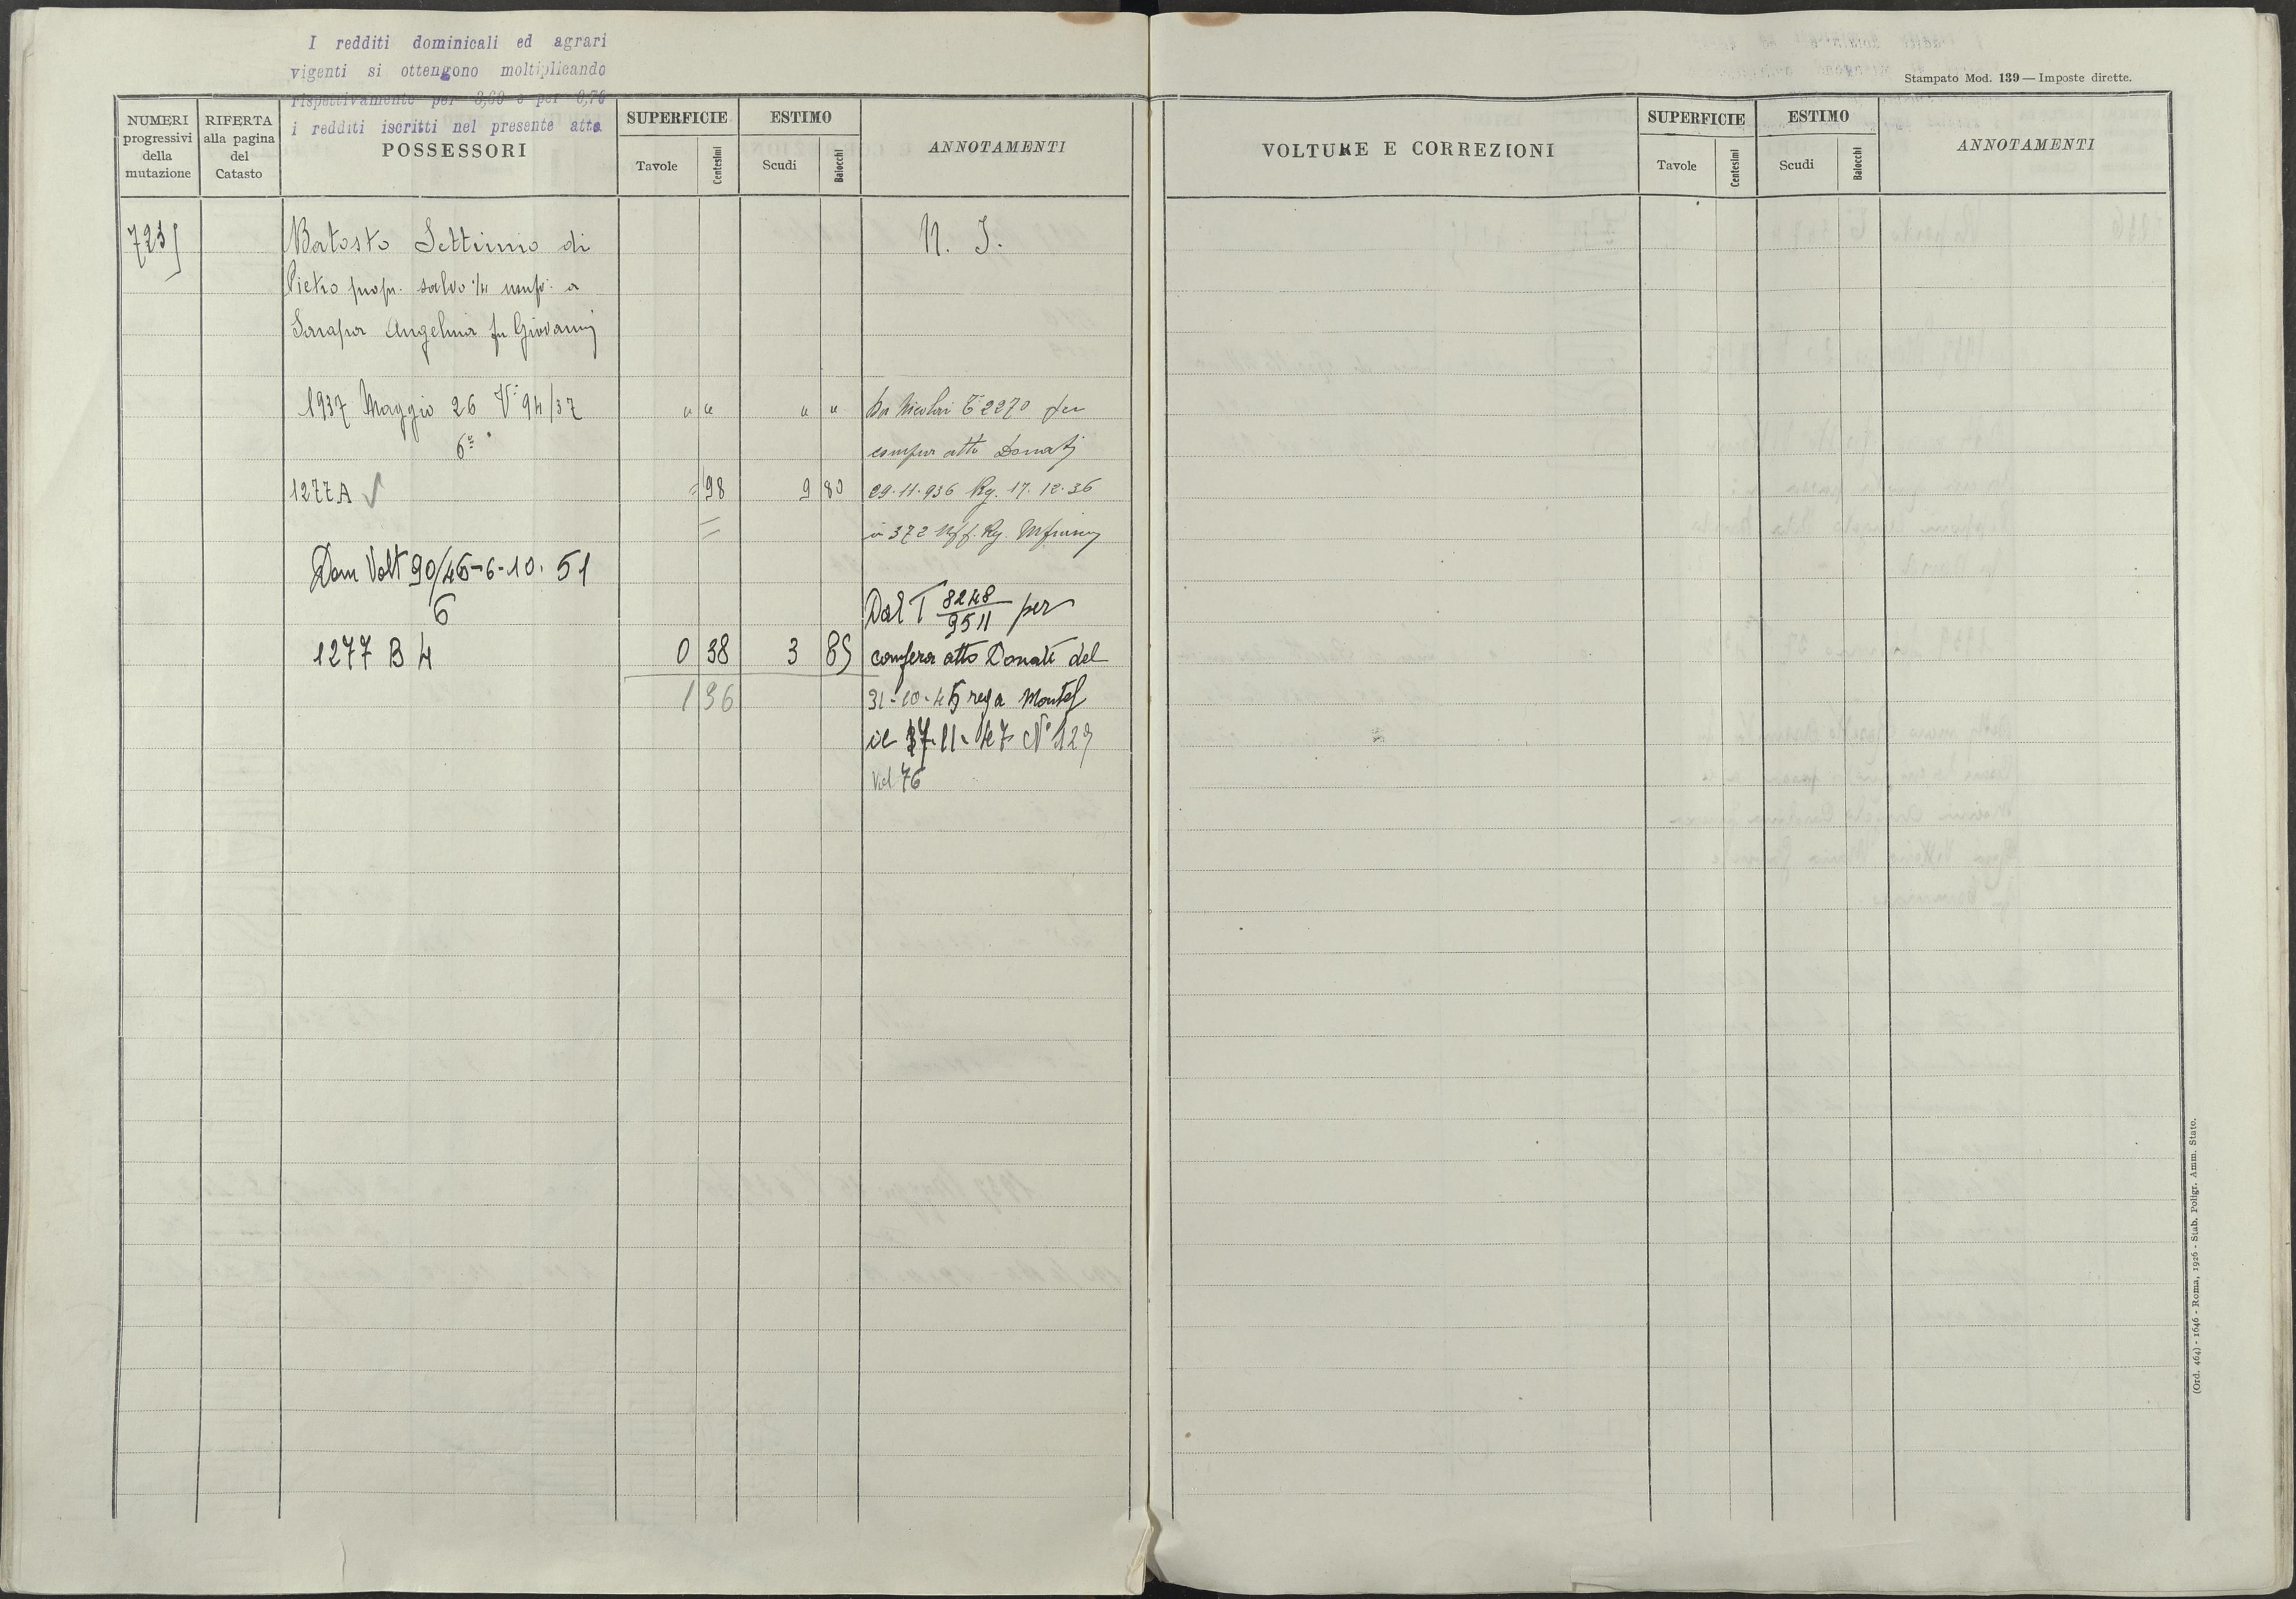 I redditi dominicali ed agrari
vigenti si ottengono moltiplicando
rispettivamente per 3,60 e per 0,76
i redditi iscritti nel presente atto
Stampato Mod. 139 — Imposte dirette.
NUMERI progressivi della mutazione
RIFERTA alla pagina del Catasto
POSSESSORI
SUPERFICIE
Tavole
Centesimi
ESTIMO
Scudi
Baiocchi
ANNOTAMENTI
VOLTURE E CORREZIONI
SUPERFICIE
Tavole
Centesimi
ESTIMO
Scudi
Baiocchi
ANNOTAMENTI
Batosto Settimio di N. I.
Pietro propr. salvo 1/4 a
Angelina fu Giovanni
1937 Maggio 26 V. 94/37 " " " " Da 2270 per
6
compra atto Donati
1277A 98 9 80 29.11.936 Rg. 17.12.36
372
Dom Volt 90/46-6-10. 51
6
Dal T 8248/9511 per
1277 B 4 0 38 3 85 compera atto Donati del
1 36 31-10-45 reg a
il 17-11-47 N° 129
Vol 76
(Ord. 464) - 1646 - Roma, 1926 - Stab. Poligr. Amm. Stato.